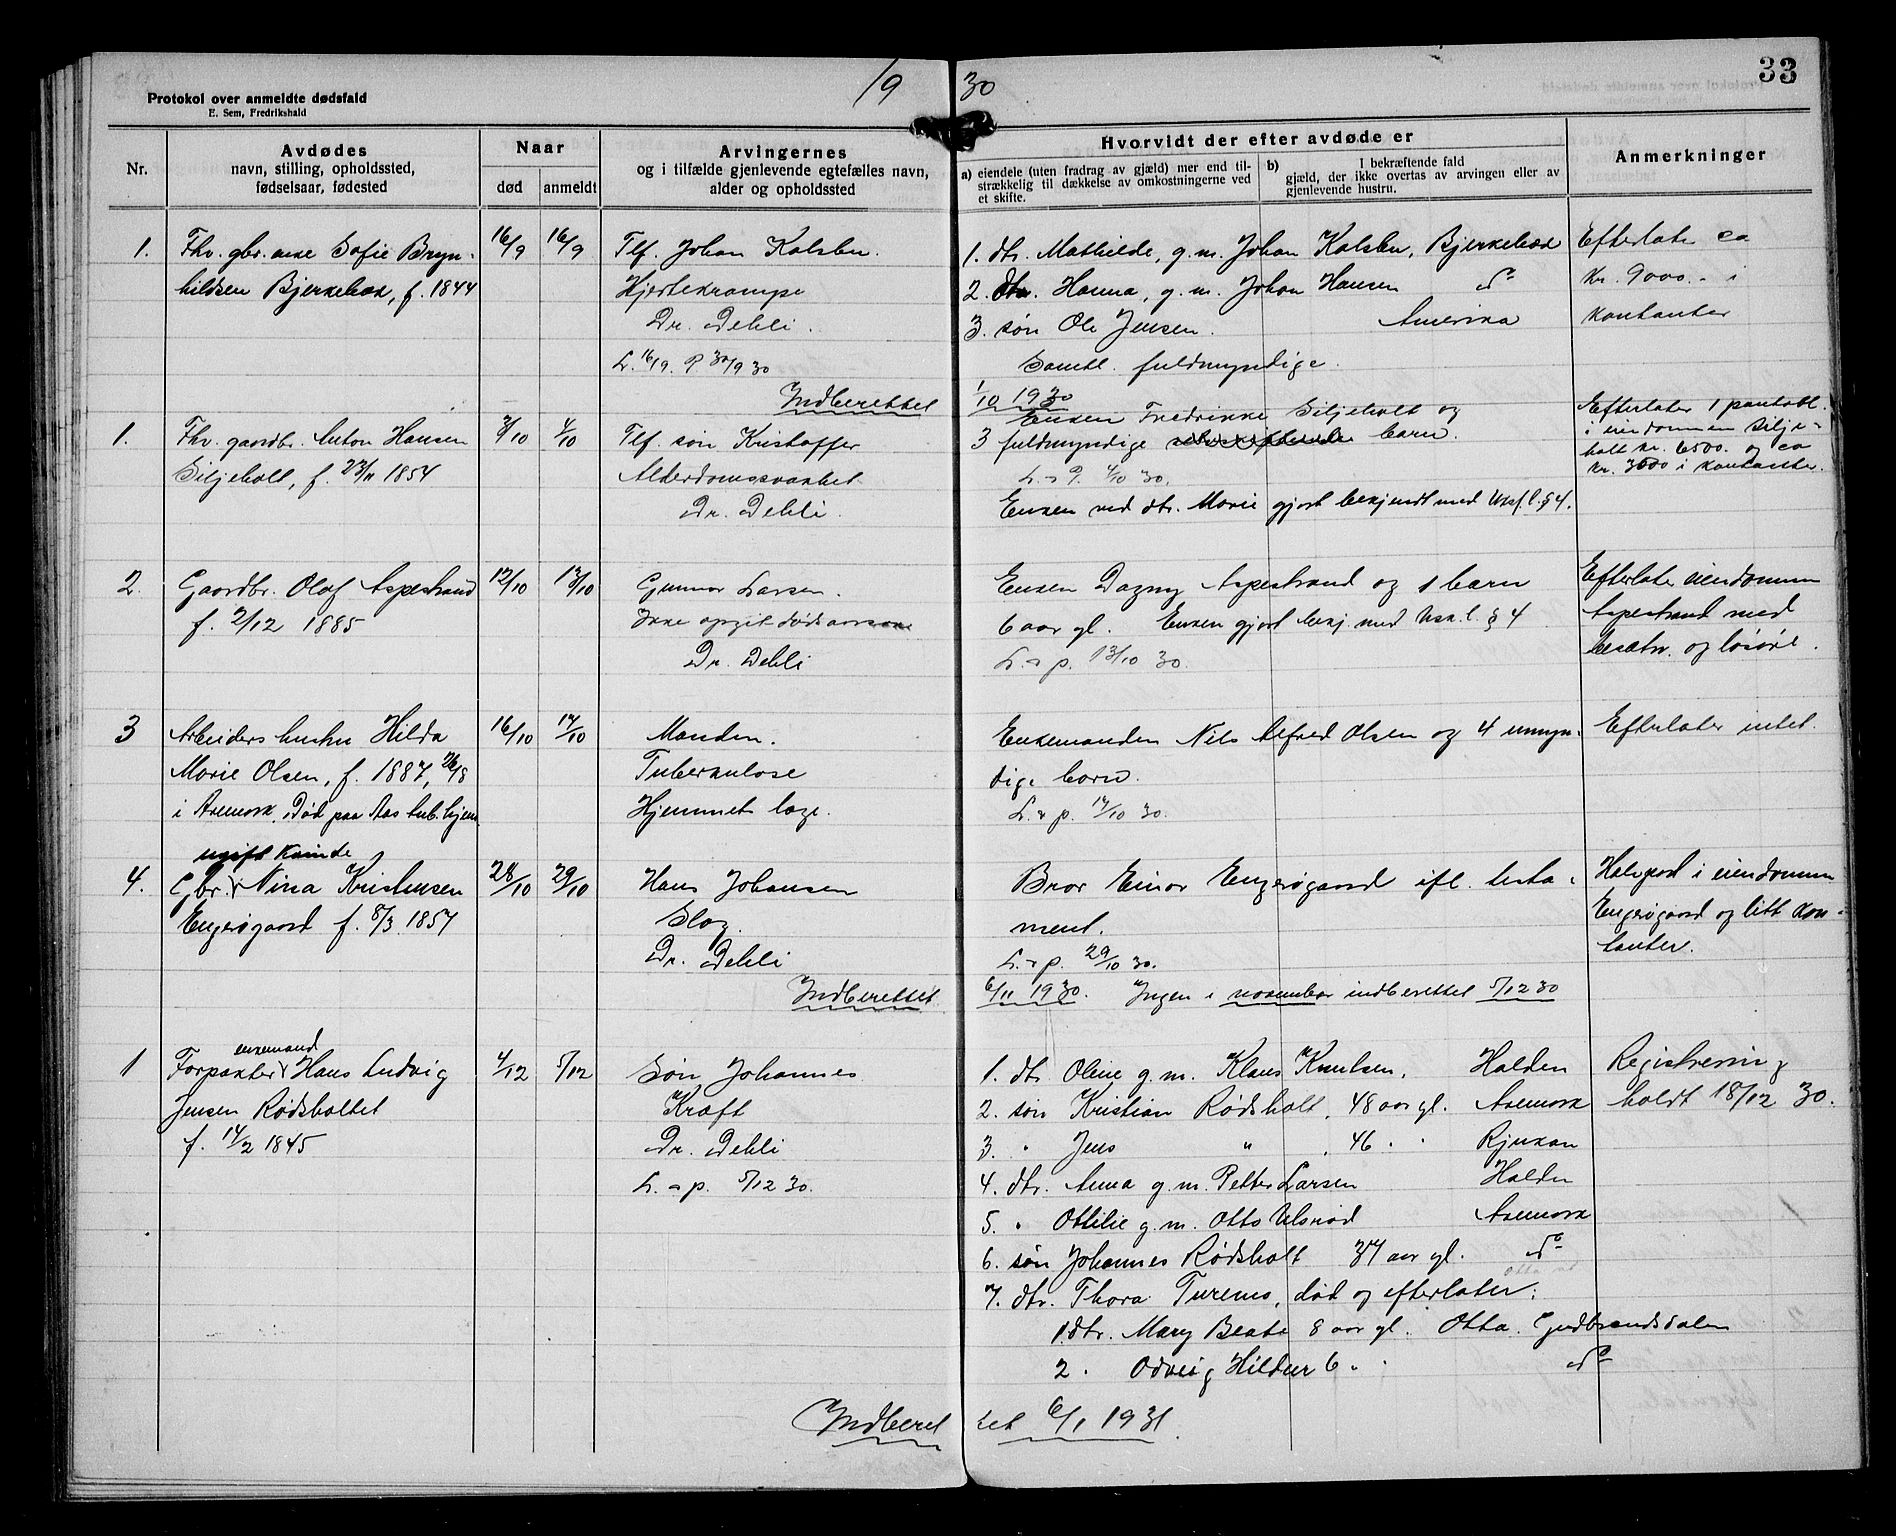 19 30
33
Protokol over anmeldte dødsfald
E. Sem, Fredrikshald
Nr.
Avdødes
navn, stilling, opholdssted,
fødselsaar, fødested
Naar
død
anmeldt
Arvingernes
og i tilfælde gjenlevende egtefælles navn,
alder og opholdssted
Hvorvidt der efter avdøde er
a) eiendele (uten fradrag av gjæld) mer end til-
strækkelig til dækkelse av omkostningerne ved
et skifte.
b) I bekræftende fald
gjæld, der ikke overtas av arvingen eller av
gjenlevende hustru.
Anmerkninger
1.
Fhv. gbr. enke Sofie Bryn-
hildsen Bjerkebæk, f. 1844
16/9
16/9
Tlf. Johan Kalsben.
Hjertekrampe
Dr. Dehli.
L. 16/9. P 30/9 30
Indberettet
1. dtr. Mathilde, g.m. Johan Kalsben, Bjerkebæk
2. dtr. Hanna, g.m. Johan Hansen do
3. søn Ole Jensen. Amerika
Samtl. fuldmyndige.
1/10 1930
Efterlater ca
kr. 9000.- i
kontanter
1.
Fhv. gaardbr. Anton Hansen
Siljeholt, f. 23/11 1854
3/10
4/10
Tlf. søn Kristoffer
Alderdomssvakhet
Dr. Dehli.
Enken Fredrikke Siljeholt og
3 fuldmyndige barn.
L. & P. 4/10 30.
Enken ved dtr. Marie gjort bekjendt med Uskf.l. § 4.
Efterlater 1 pantobl.
i eiendommen Silje-
holt kr. 6500. og ca
kr. 3000 i kontanter.
2.
Gaardbr. Olaf Aspestrand
f. 2/12 1885
12/10
13/10
Gunnar Larsen.
Ikke opgit dødsaarsak
Dr. Dehli
Enken Dagny Aspestrand og 1 barn
6 aar gl. Enken gjort bekj. med Usk.l. § 4
L. & p. 13/10 30.
Efterlater eiendommen
Aspestrand med
besætn. og løsøre.
3
Arbeiders hustru Hilda
Marie Olsen, f. 1887, 26/8
i Aremark. Død paa Aas tub.hjem
16/10
17/10
Manden.
Tuberkulose
Hjemmets læge.
Enkemanden Nils Alfred Olsen og 4 umyn-
dige barn.
L. & p. 17/10 30.
Efterlater intet.
4.
ugift kvinde
Gbr. Nina Kristensen
Engerøgaard f. 8/3 1857
28/10
29/10
Hans Johansen
Slag.
Dr. Dehli
Indberettet
Bror Einar Engerøgaard ifl. testa-
ment.
L. & p. 29/10 30.
6/11 1930. Ingen i november indberettet 5/12 30
Halvpart i eiendommen
Engerøgaard og litt kon-
tanter.
1
enkemand
Forpakter Hans Ludvig
Jensen Rødsholtet
f. 14/2 1845
4/12
5/12
Søn Johannes
Kræft
Dr. Dehli
L. & p. 5/12 30.
1. dtr. Oline g.m. Klaus Knutsen, Halden
2. søn Kristian Rødsholt, 48 aar gl. Aremark
3. " Jens " , 46 " " Rjukan
4. dtr. Anna g.m. Petter Larsen Halden
5. " Ottilie g.m. Otto Ulsrød Aremark
6. søn Johannes Rødsholt 37 aar gl. do
7. dtr. Thora Turens, død og efterlater:
1. dtr. Mary Beate 8 aar gl. Otta. Gudbrandsdalen
2 " Odveig Hildur 6 " " do
Registrering
holdt 18/12 30.
Indberet tet 6/1 1931.